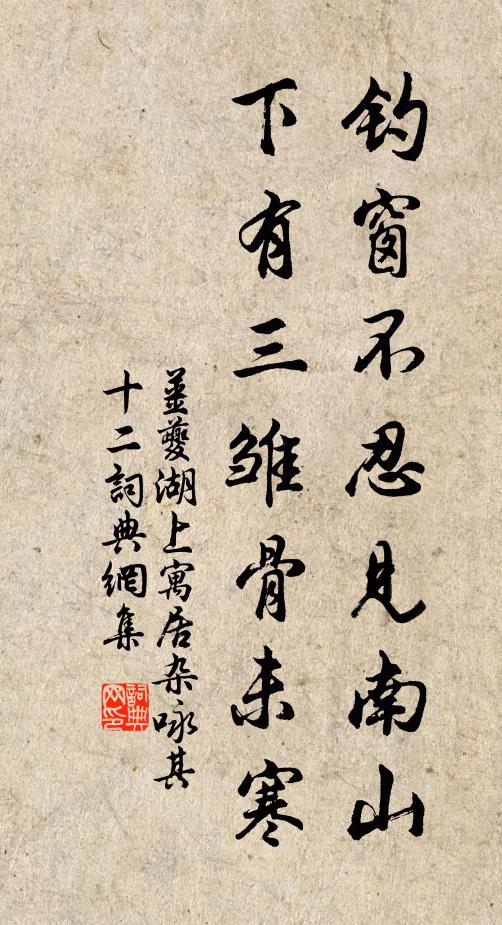 钓窗不忍见南山
下有三雏骨未寒
姜夔湖上寓居杂咏其
十二詞典網集
詞典
网印